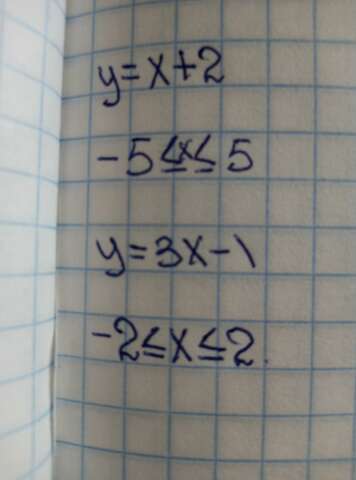 y=x+2
-5≤x≤5
y=3x-1
-2≤x≤2.